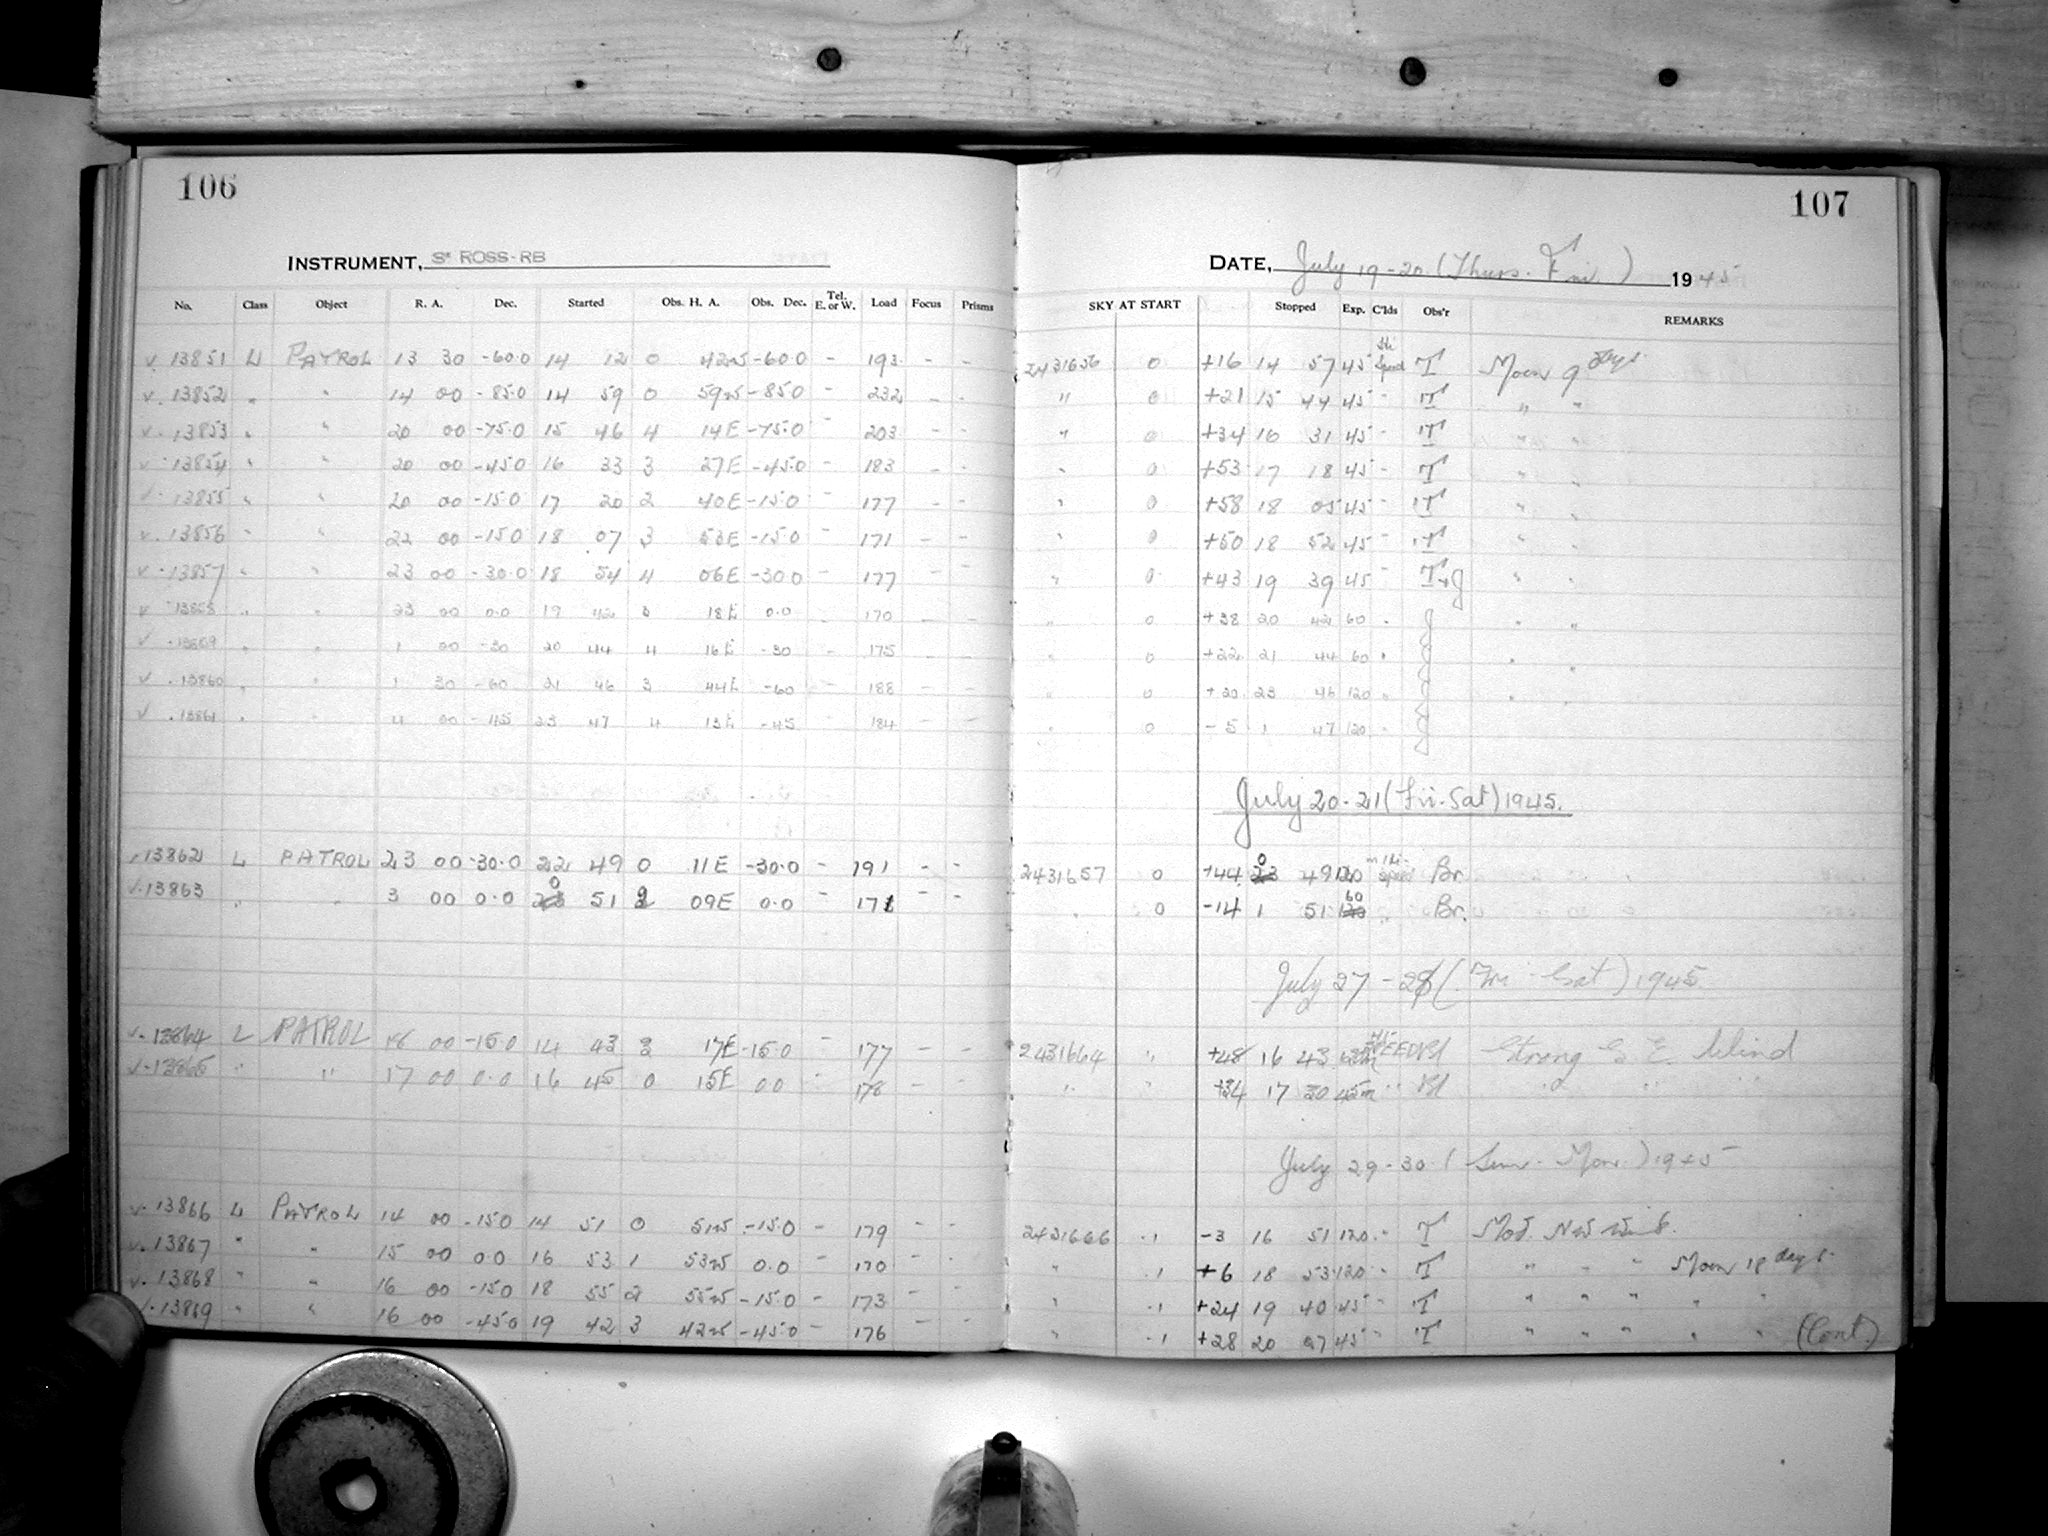 106
INSTRUMENT, ROSS-RB
No. Class Object R. A. Dec. Started Obs. H. A. Obs. Dec. Tel. E. or W. Load Focus Prisms
v. 13851 L PATROL 13 30 -60.0 14 12 0 42W -60.0 - 193 - -
v. 13852 " " 14 00 -85.0 14 59 0 59W -85.0 - 232 - -
v. 13853 " " 20 00 -75.0 15 46 4 14E -75.0 - 203 - -
v. 13854 " " 20 00 -45.0 16 33 3 27E -45.0 - 183 - -
v. 13855 " " 20 00 -15.0 17 20 2 40E -15.0 - 177 - -
v. 13856 " " 22 00 -15.0 18 07 3 53E -15.0 - 171 - -
v. 13857 " " 23 00 -30.0 18 54 4 06E -30.0 - 177 - -
v 13858 " " 23 00 0.0 19 42 3 18E 0.0 170 - -
v .13859 " " 1 00 -30 20 44 4 16E -30 - 175 - -
v .13860 " " 1 30 -60 21 46 3 44E -60 - 188 - -
v .13861 " " 4 00 -45 23 47 4 13E -45 184 - -
.13862 L PATROL 23 00 -30.0 22 49 0 11E -30.0 - 191 - -
v.13863 " " 3 00 0.0 0 51 2 09E 0.0 - 171 - -
v. 13864 L PATROL 00 -15.0 14 43 17E -15.0 - 177 - -
v. 13865 " " 17 00 0.0 16 45 0 15E 00 178 - -
v. 13866 L PATROL 14 00 -15.0 14 51 0 51W -15.0 - 179 - -
v. 13867 " " 15 00 0.0 16 53 1 53W 0.0 - 170 - -
v. 13868 " " 16 00 -15.0 18 55 2 55W -15.0 - 173 - -
v. 13869 " " 16 00 -45.0 19 42 3 42W -45.0 - 176 - -
107
DATE, July 19-20 (Thurs. Fri.) 1945
SKY AT START Stopped Exp. C'lds Obs'r REMARKS
2431656 0 +16 14 57 45 Speed T Moon 9 days
" 0 +21 15 44 45 " T " "
" 0 +34 16 31 45 " T " "
" 0 +53 17 18 45 " T " "
" 0 +58 18 05 45 " T " "
" 0 +50 18 52 45 " T " "
" 0 +43 19 39 45 " T+J " "
" 0 +38 20 42 60 " J " "
" 0 +22 21 44 60 " J " "
" 0 +20 23 46 120 " J " "
" 0 -5 1 47 120 " J
July 20-21 (Fri-Sat) 1945.
2431657 0 +44 0 49 120 Speed Br.
" 0 -14 1 51 60 " Br.
July 27-28 (Fri-Sat) 1945
2431664 " +48 16 43 SPEED Strong S. E. Wind
" " +34 17 30 45m " " " "
July 29-30 (Sun-Mon.) 1945
2431666 .1 -3 16 51 120 " T Mod. NW wind.
" .1 +6 18 53 120 " T " " " Moon 18 days
" .1 +24 19 40 45 " T " " " " "
" .1 +28 20 27 45 " T " " " " " (Cont.)